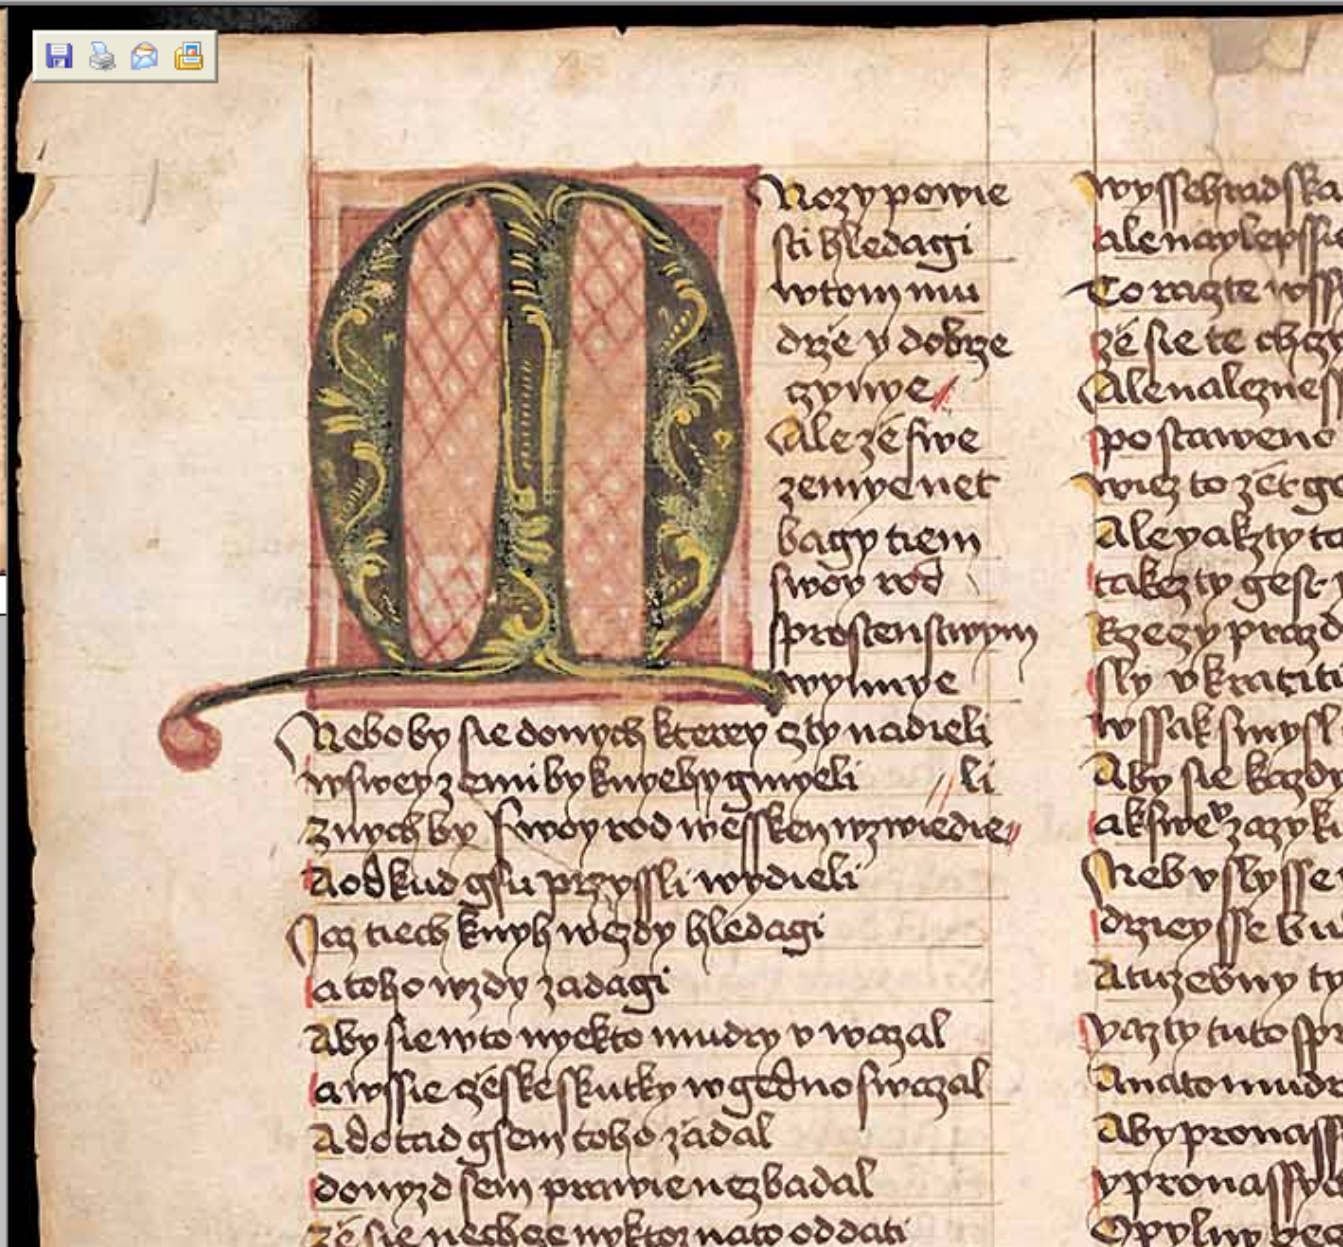 Mnozy powie
sti hledagi
wtom mu
drzie y dobrze
czynye
Ale ze swe
zemye net
bagy tiem
swoy rod
sprostenstwym
wynnye
Nebo by sie donych kterey czty nadieli
wswey zemi by knyehy gmyeli li
Znych by swoy rod wessken wzwiedie
Aodkud gsu przyssli wydieli
Jaz tiech knyh wezdy hledagi
atoho wzdy zadagi
Aby sie wto nyekto mudry v wazal
a wssie czeske skutky w gedno swazal
Adotad gsem toho zadal
donyzd sem prawie nezbadal
ze sie nechce nyktoz nato oddati
wyssehradska
ale naylepssie
To raczte wss
ze sie te chcz
Ale nalcznes
postaweno
wiez to zet ge
Ale yakzty to
takezty gest
rzeczy prazd
sly vkratiti
wssak smysl
Aby sie kazdy
ak swe v yazyk
Neb vslysse
drziey sse bu
Atu zewny ty
yazty tuto spr
Anato mudr
Aby pronass
ypronassye
Opylny